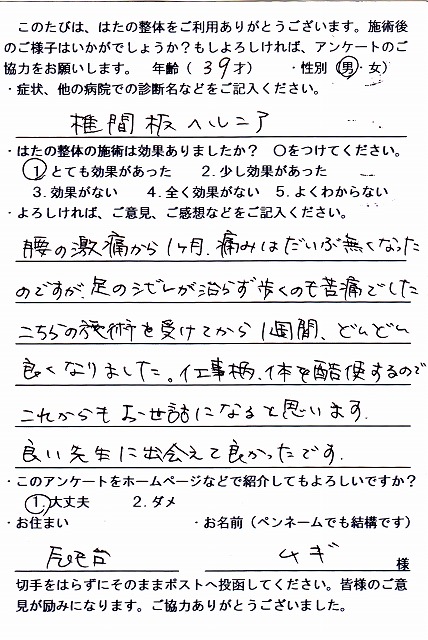 このたびは、はたの整体をご利用ありがとうございます。施術後
のご様子はいかがでしょうか？もしよろしければ、アンケートのご
協力をお願いします。　年齢（ 39才）　・性別（男・女）
・症状、他の病院での診断名などをご記入ください。
椎間板ヘルニア
・はたの整体の施術は効果ありましたか？　〇をつけてください。
1 とても効果があった　2. 少し効果があった
3. 効果がない　4. 全く効果がない　5. よくわからない
・よろしければ、ご意見、ご感想などをご記入ください。
腰の激痛から1ヶ月、痛みはだいぶ無くなった
のですが、足のシビレが治らず歩くのも苦痛でした
こちらの施術を受けてから1週間、どんどん
良くなりました。仕事柄、体を酷使するので
これからもお世話になると思います.
良い先生に出会えて良かったです.
・このアンケートをホームページなどで紹介してもよろしいですか？
1. 大丈夫　2. ダメ
・お住まい　・お名前（ペンネームでも結構です）
ムギ　様
切手をはらずにそのままポストへ投函してください。皆様のご意
見が励みになります。ご協力ありがとうございました。